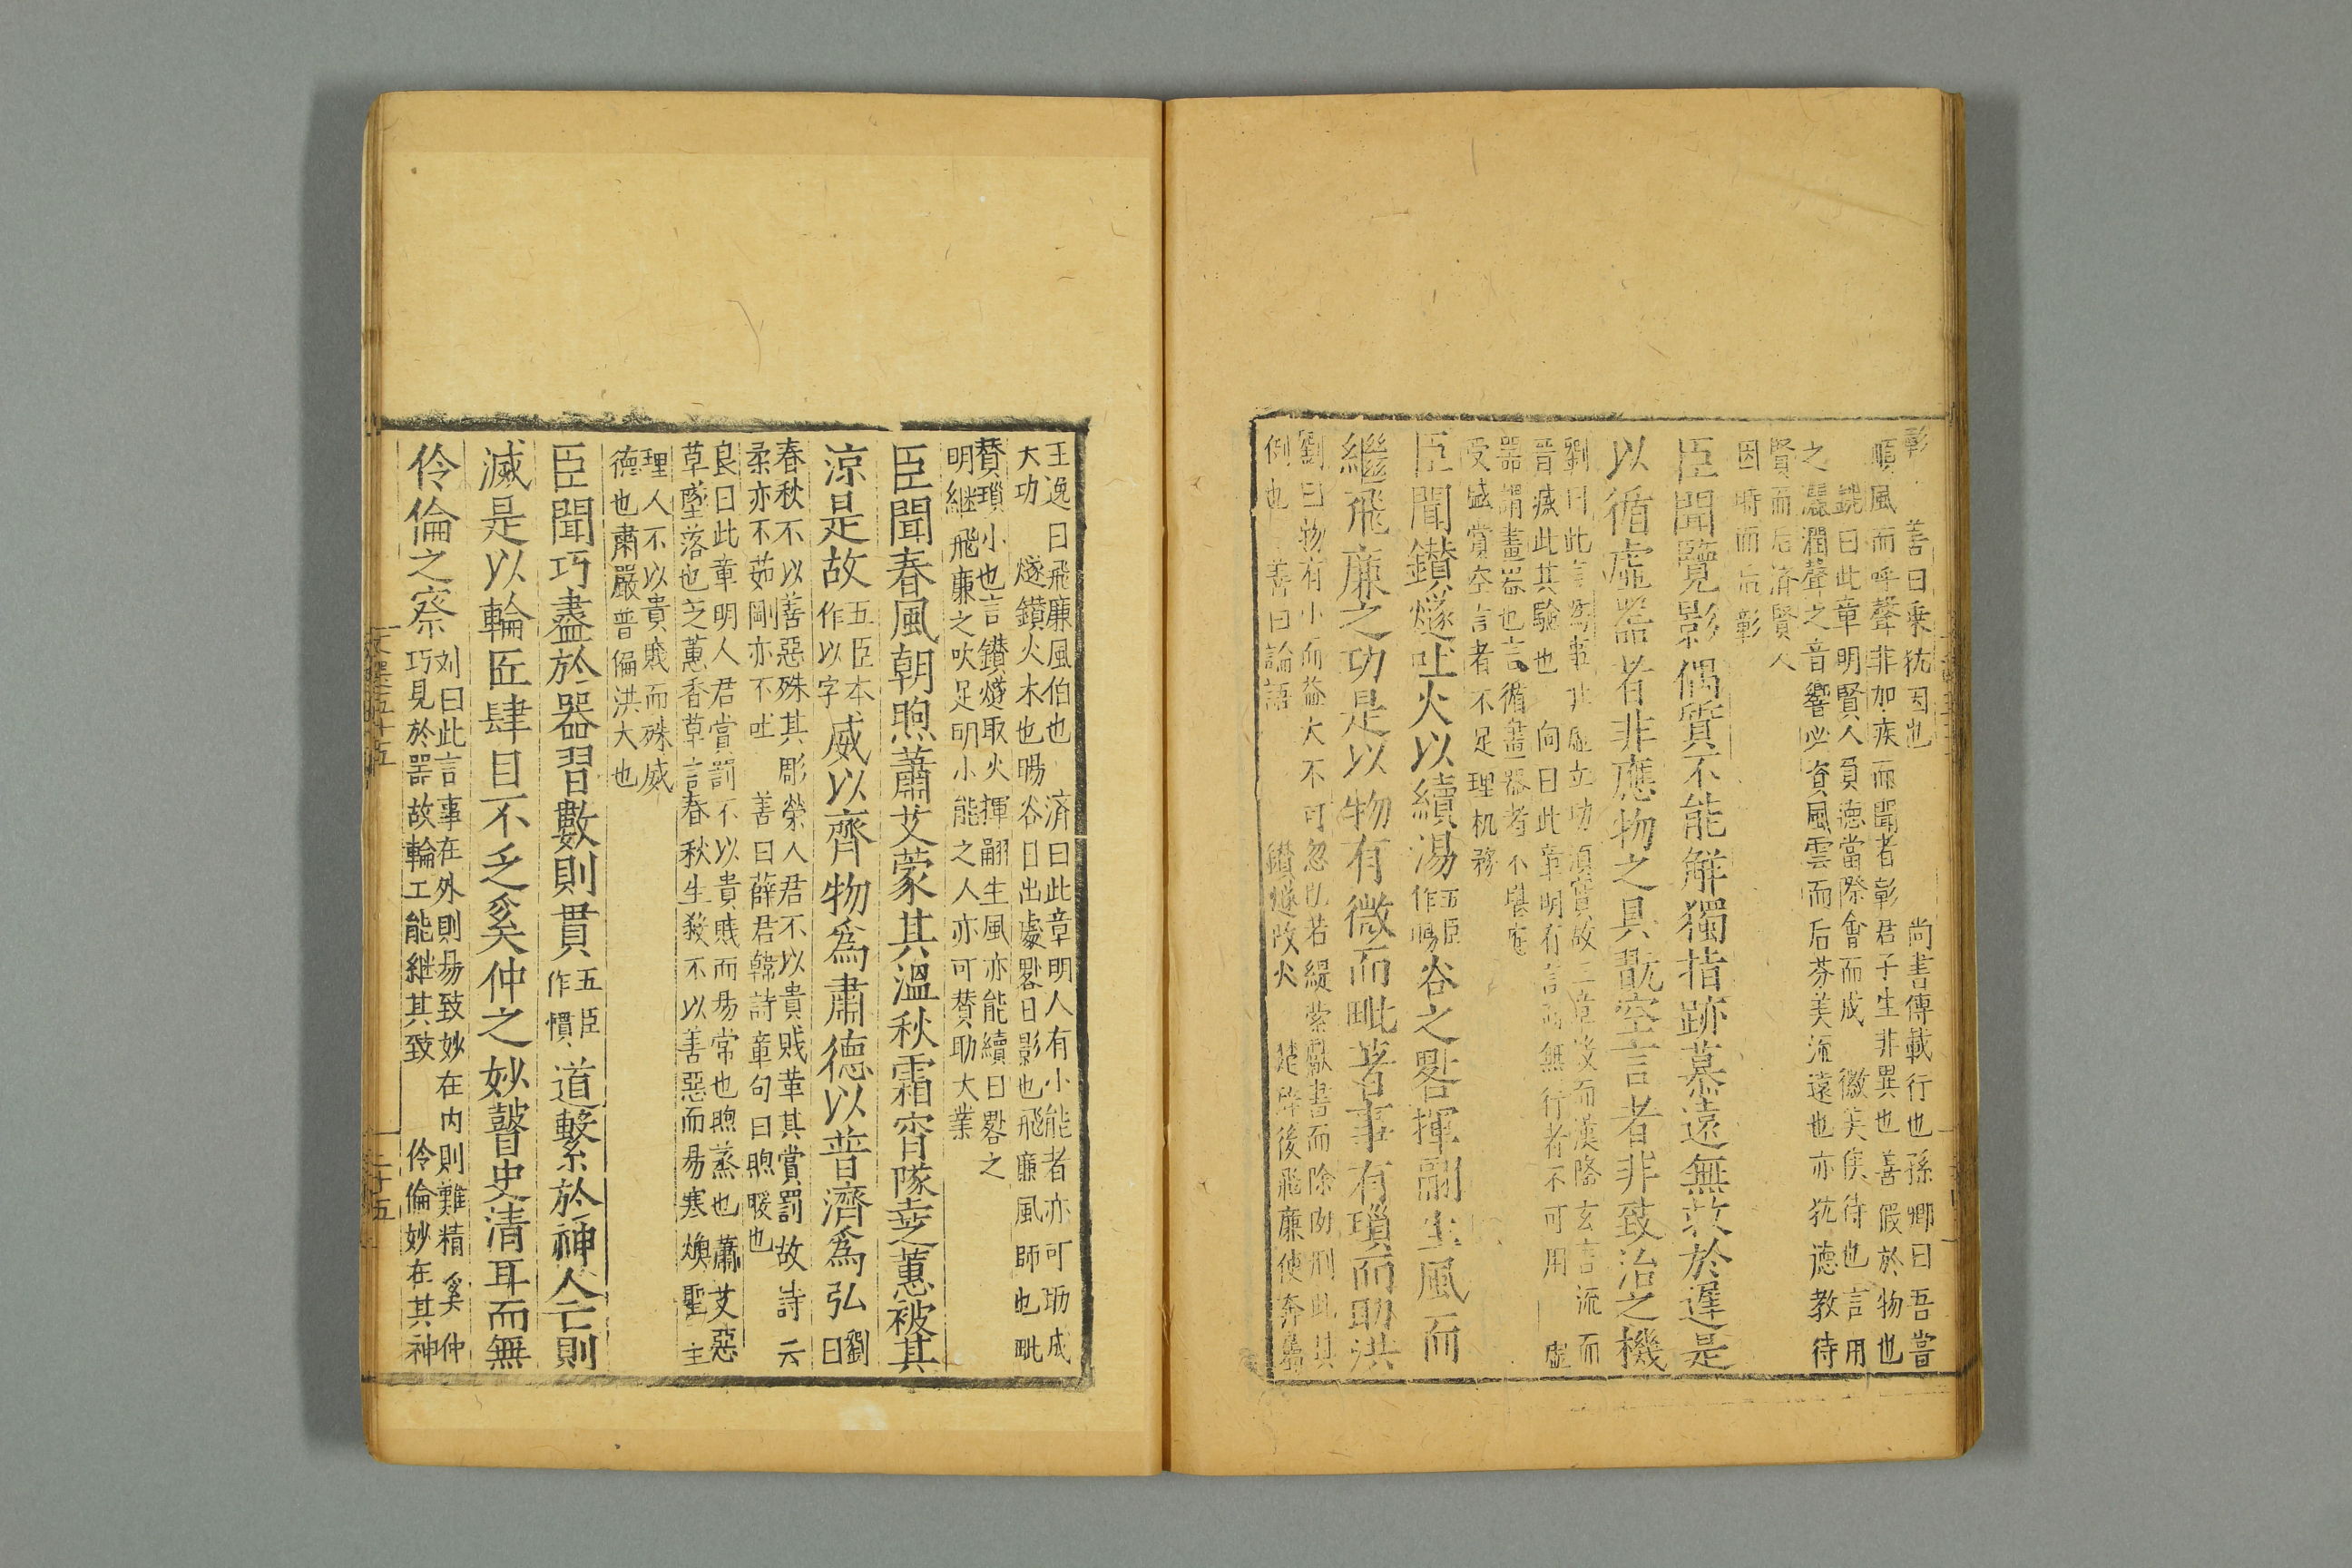 彰　善曰乗犹因也　尚書傳載行也孫卿曰吾嘗
順風而呼聲非加疾而聞者彰君子生非異也善假於物也
銑曰此章明賢人負德當際會而成　徽美俟待也言用
之灑潤聲之音響必資風雲而后芬美流遠也亦犹德教待
賢而后済賢人
因時而后彰
臣聞覽影偶質不能解獨指跡慕遠無救於遲是
以循虛器者非應物之具翫空言者非致治之機
劉曰此言為事非虛立功須實故三章沒而漢隆玄言流而
晉滅此其驗也　向曰此章明有言而無行者不可用　虛
器謂畫器也言循畫器者不堪應
受盛賞空言者不足理机務
臣聞鑚燧吐火以續湯五臣作暘谷之晷揮翮生風而
繼飛廉之功是以物有微而毗著事有瑣而助洪
劉曰物有小而益大不可忽也若緹縈獻書而除肉刑此其
例也　善曰論語　鑚燧改火　楚辞後飛廉使奔屬
王逸曰飛廉風伯也　済曰此章明人有小能者亦可助成
大功　燧鑚火木也暘谷日出處晷日影也飛廉風師也毗
賛瑣小也言鑚燧取火揮翮生風亦能續日晷之
明継飛廉之吹足明小能之人亦可賛助大業
臣聞春風朝煦蕭艾蒙其溫秋霜宵隊芝蕙被其
涼是故五臣本作以字威以齊物爲肅德以普濟爲弘劉曰
春秋不以善惡殊其彫榮人君不以貴賎革其賞罰故詩云
柔亦不茹剛亦不吐　善曰薛君韓詩章句曰煦暖也
良曰此章明人君賞罰不以貴賎而易常也煦蒸也蕭艾惡
草墜落也芝蕙香草言春秋生殺不以善惡而易寒燠聖主
理人不以貴賎而殊威
德也肅嚴普徧洪大也
臣聞巧盡於器習數則貫五臣作慣道繫於神人亡則
滅是以輪匠肆目不乏奚仲之妙瞽史清耳而無
伶倫之察刘曰此言事在外則易致妙在内則難精　奚仲
巧見於器故輪工能継其致　伶倫妙在其神
文選五十五
二十五